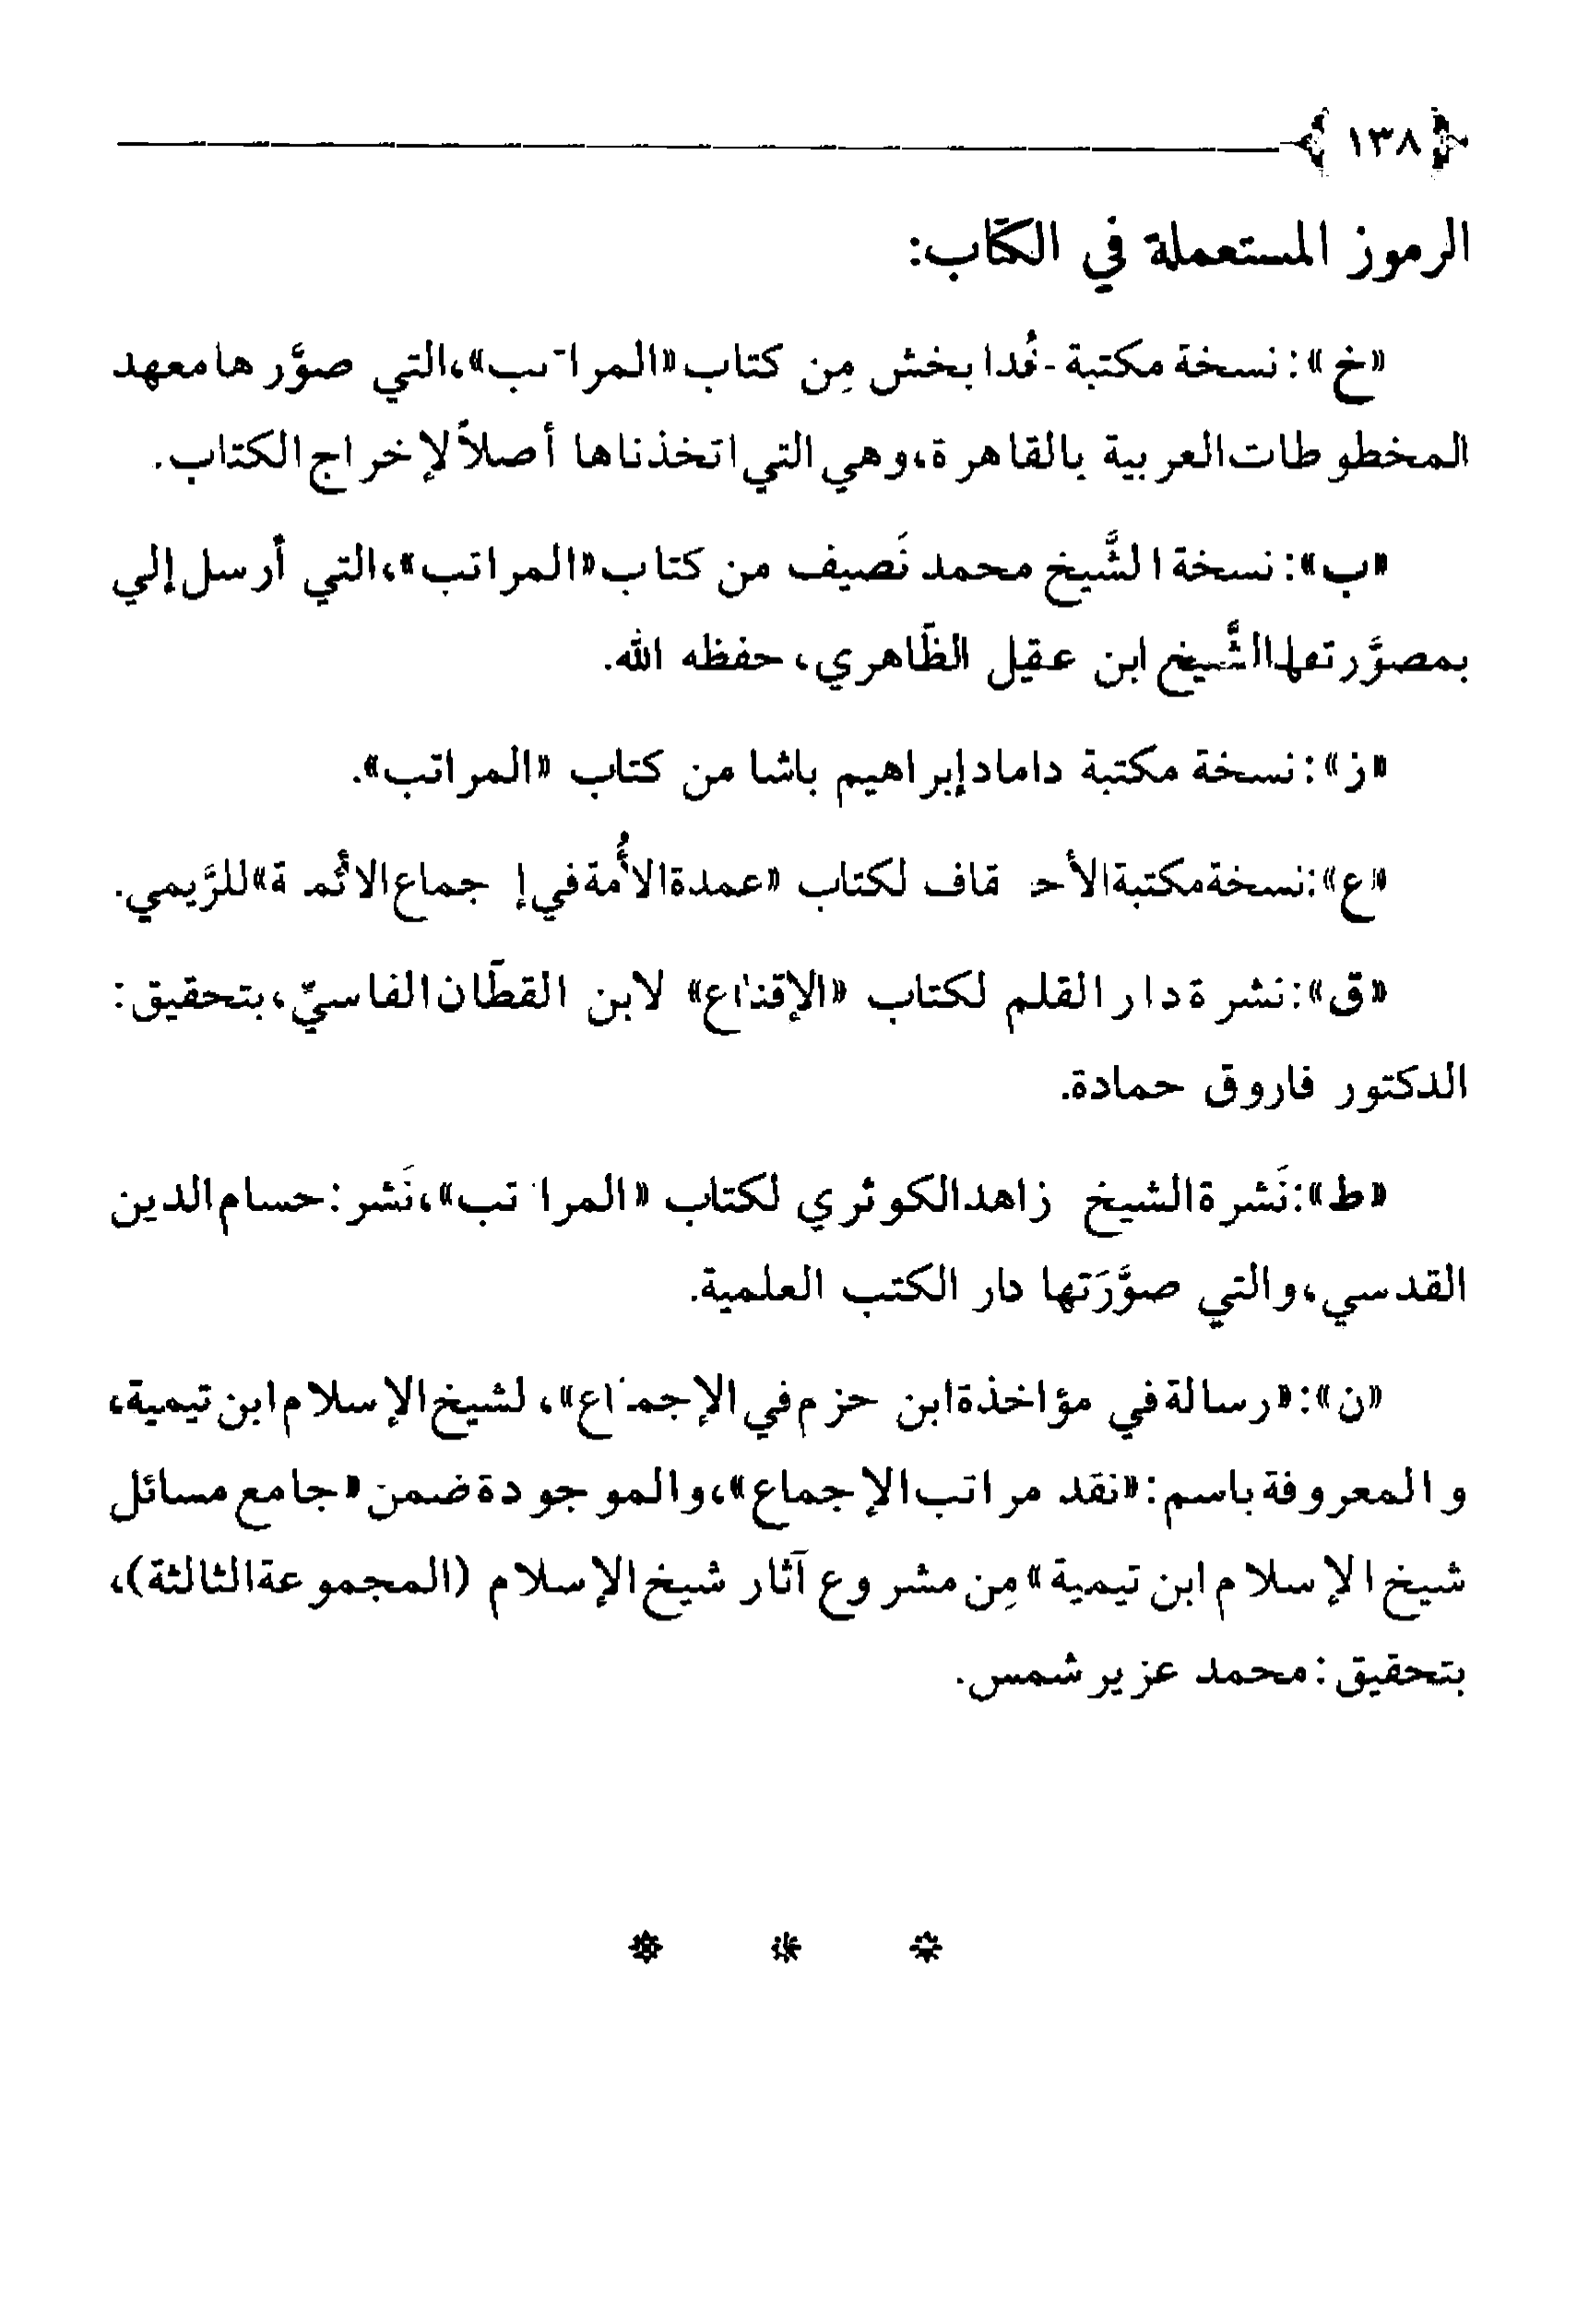 ١٣٨
الرموز المستعملة في الكتاب:
«خ»: نسخة مكتبة خُدا بخش مِن كتاب «المراتب»، التي صوَّرها معهد
المخطوطات العربية بالقاهرة، وهي التي اتخذناها أصلاً لإخراج الكتاب.
«ب»: نسخة الشَّيخ محمد نَصيف من كتاب «المراتب»، التي أرسل إلي
بمصوَّرتها الشَّيخ ابن عقيل الظَّاهري، حفظه الله.
«ز»: نسخة مكتبة داماد إبراهيم باشا من كتاب «المراتب».
«ع»: نسخة مكتبة الأحقاف لكتاب «عمدة الأُمة في إجماع الأئمة» للرَّيمي.
«ق»: نشرة دار القلم لكتاب «الإقناع» لابن القطَّان الفاسيّ، بتحقيق:
الدكتور فاروق حمادة.
«ط»: نَشرة الشيخ زاهد الكوثري لكتاب «المراتب»، نَشر: حسام الدين
القدسي، والتي صوَّرَتها دار الكتب العلمية.
«ن»: «رسالة في مؤاخذة ابن حزم في الإجماع»، لشيخ الإسلام ابن تيمية،
والمعروفة باسم: «نقد مراتب الإجماع»، والموجودة ضمن «جامع مسائل
شيخ الإسلام ابن تيمية» مِن مشروع آثار شيخ الإسلام (المجموعة الثالثة)،
بتحقيق: محمد عزير شمس.